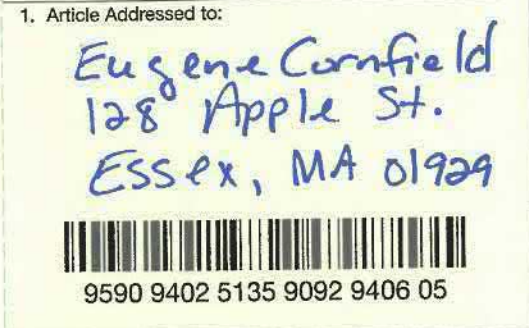 1. Article Addressed to:
Eugene Cornfield
128 Apple St.
Essex, MA 01929
9590 9402 5135 9092 9406 05